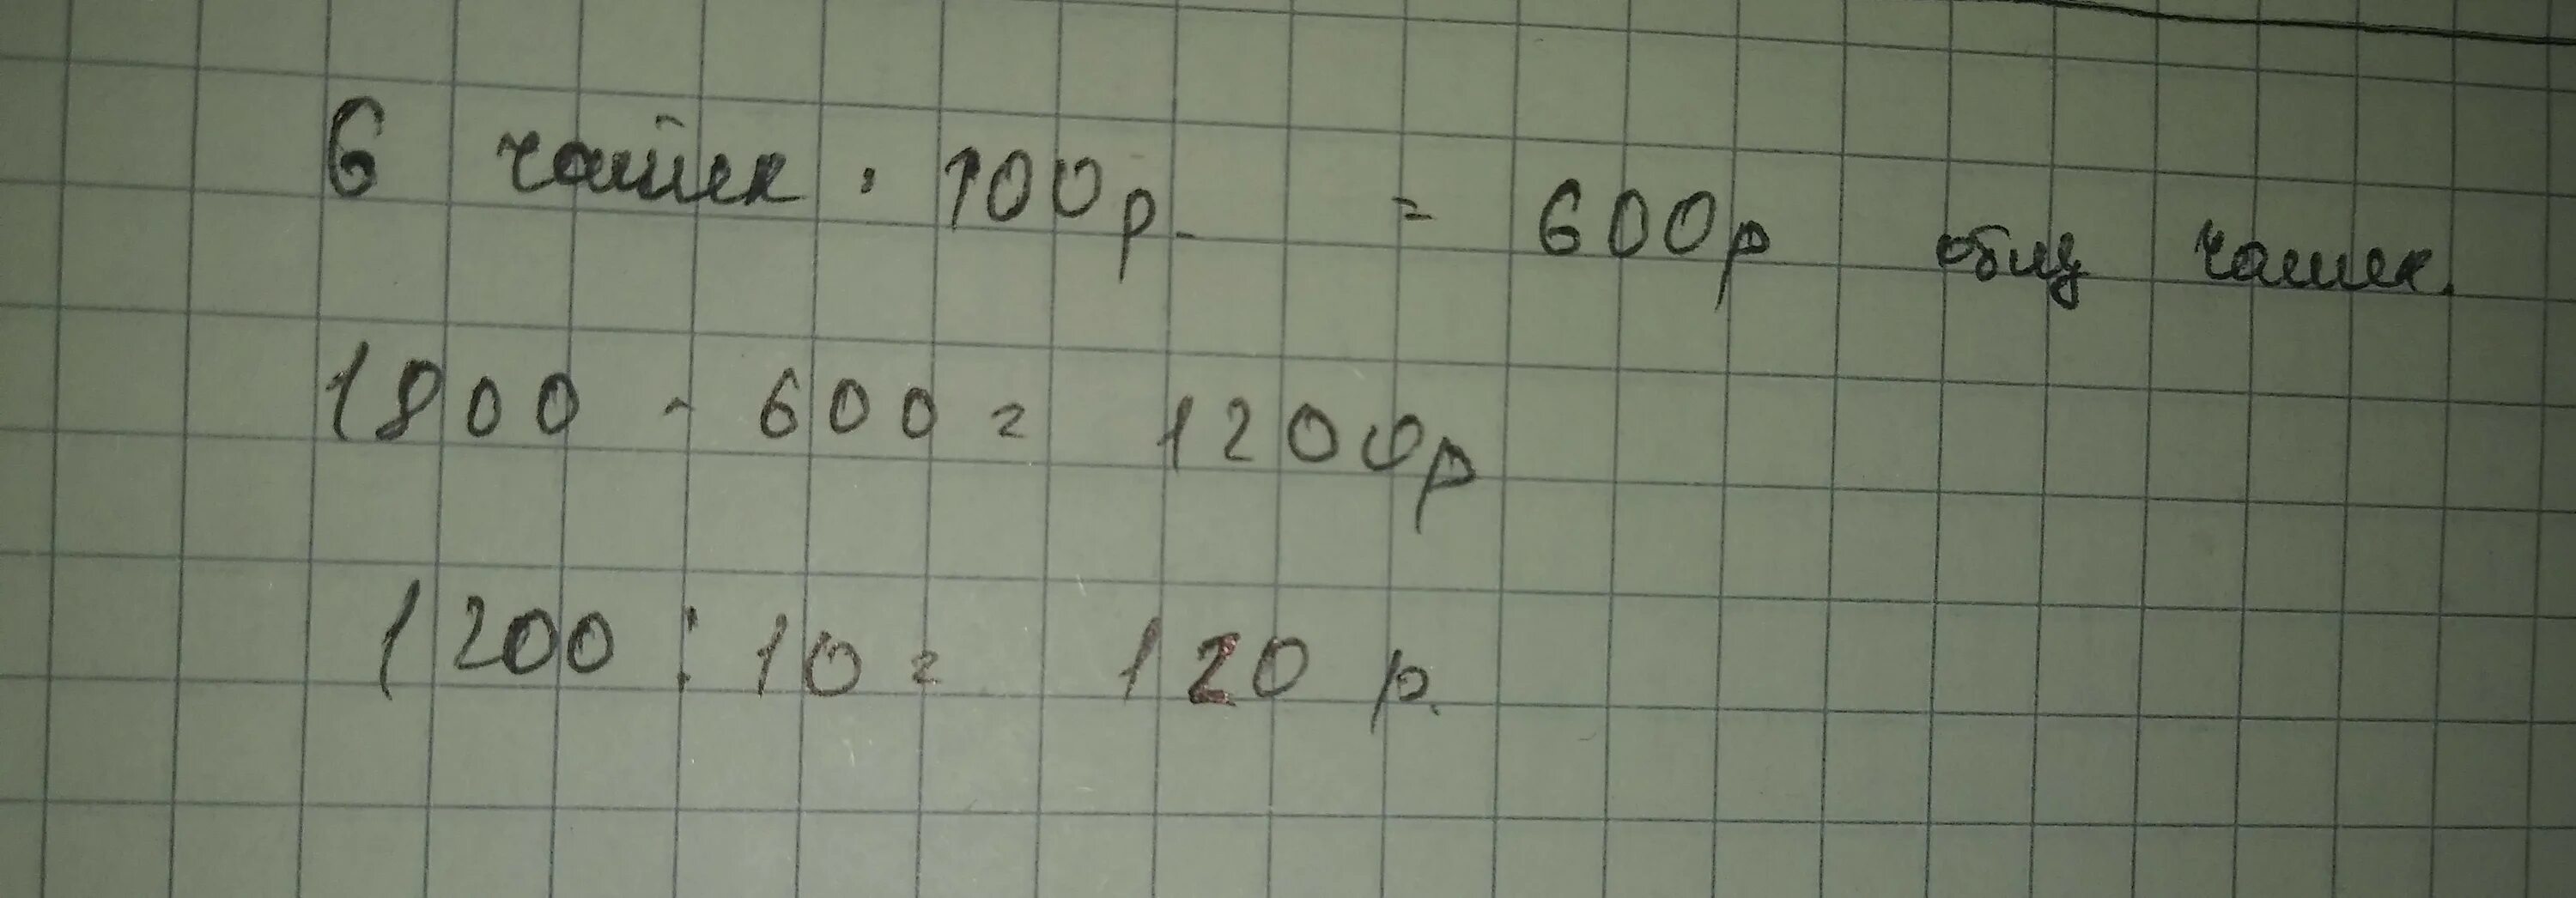 6 чашек · 100р. = 600р общ чашек.
1800 - 600 = 1200р
1200 : 10 = 120 р.